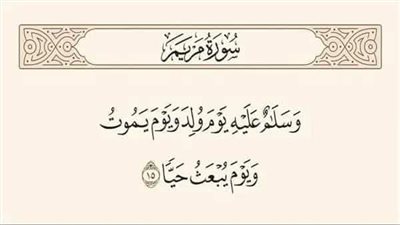 سُورَةُ مَرْيَمَ
وَسَلَٰمٌ عَلَيْهِ يَوْمَ وُلِدَ وَيَوْمَ يَمُوتُ
وَيَوْمَ يُبْعَثُ حَيًّا ١٥